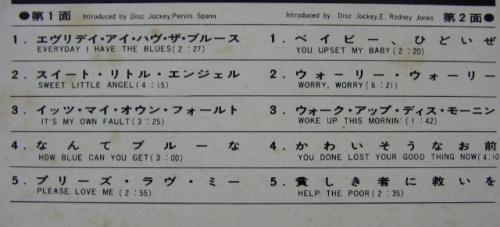 ●第1面 Introduced by Disc Jockey,Pervis Spann
1. エヴリデイ・アイ・ハヴ・ザ・ブルース
EVERYDAY I HAVE THE BLUES(2:27)
2. スイート・リトル・エンジェル
SWEET LITTLE ANGEL(4:15)
3. イッツ・マイ・オウン・フォールト
IT'S MY OWN FAULT(3:25)
4. なんてブルーな
HOW BLUE CAN YOU GET(3:00)
5. プリーズ・ラヴ・ミー
PLEASE LOVE ME(2:55)
Introduced by Disc Jockey,E. Rodney Jones 第2面●
1. ベイビー、ひどいぜ
YOU UPSET MY BABY(2:20)
2. ウォーリー・ウォーリー
WORRY, WORRY(6:21)
3. ウォーク・アップ・ディス・モーニン
WOKE UP THIS MORNIN'(1:42)
4. かわいそうなお前
YOU DONE LOST YOUR GOOD THING NOW(4:10
5. 貧しき者に救いを
HELP THE POOR(2:35)